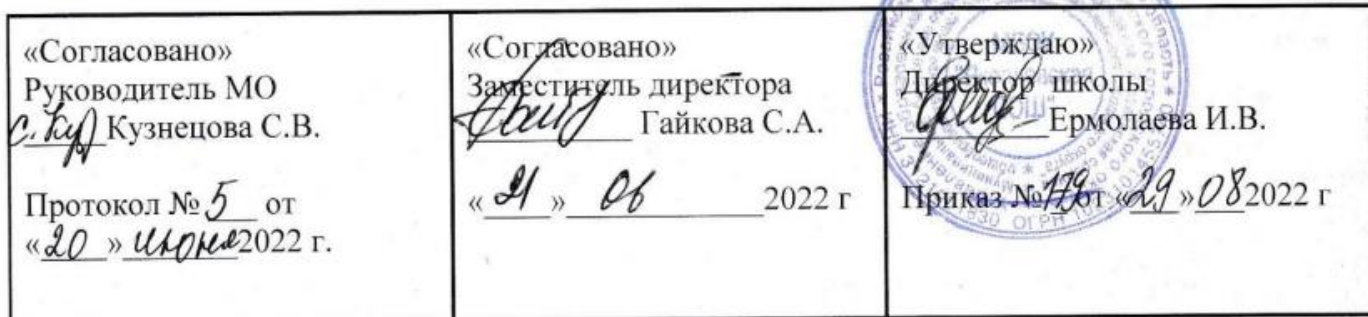 «Согласовано»
Руководитель МО
С. Куз Кузнецова С.В.
Протокол № 5 от
«20» июня 2022 г.
«Согласовано»
Заместитель директора
Гайкова С.А.
«21» 06 2022 г
«Утверждаю»
Директор школы
Ермолаева И.В.
Приказ № 179 от «29» 08 2022 г